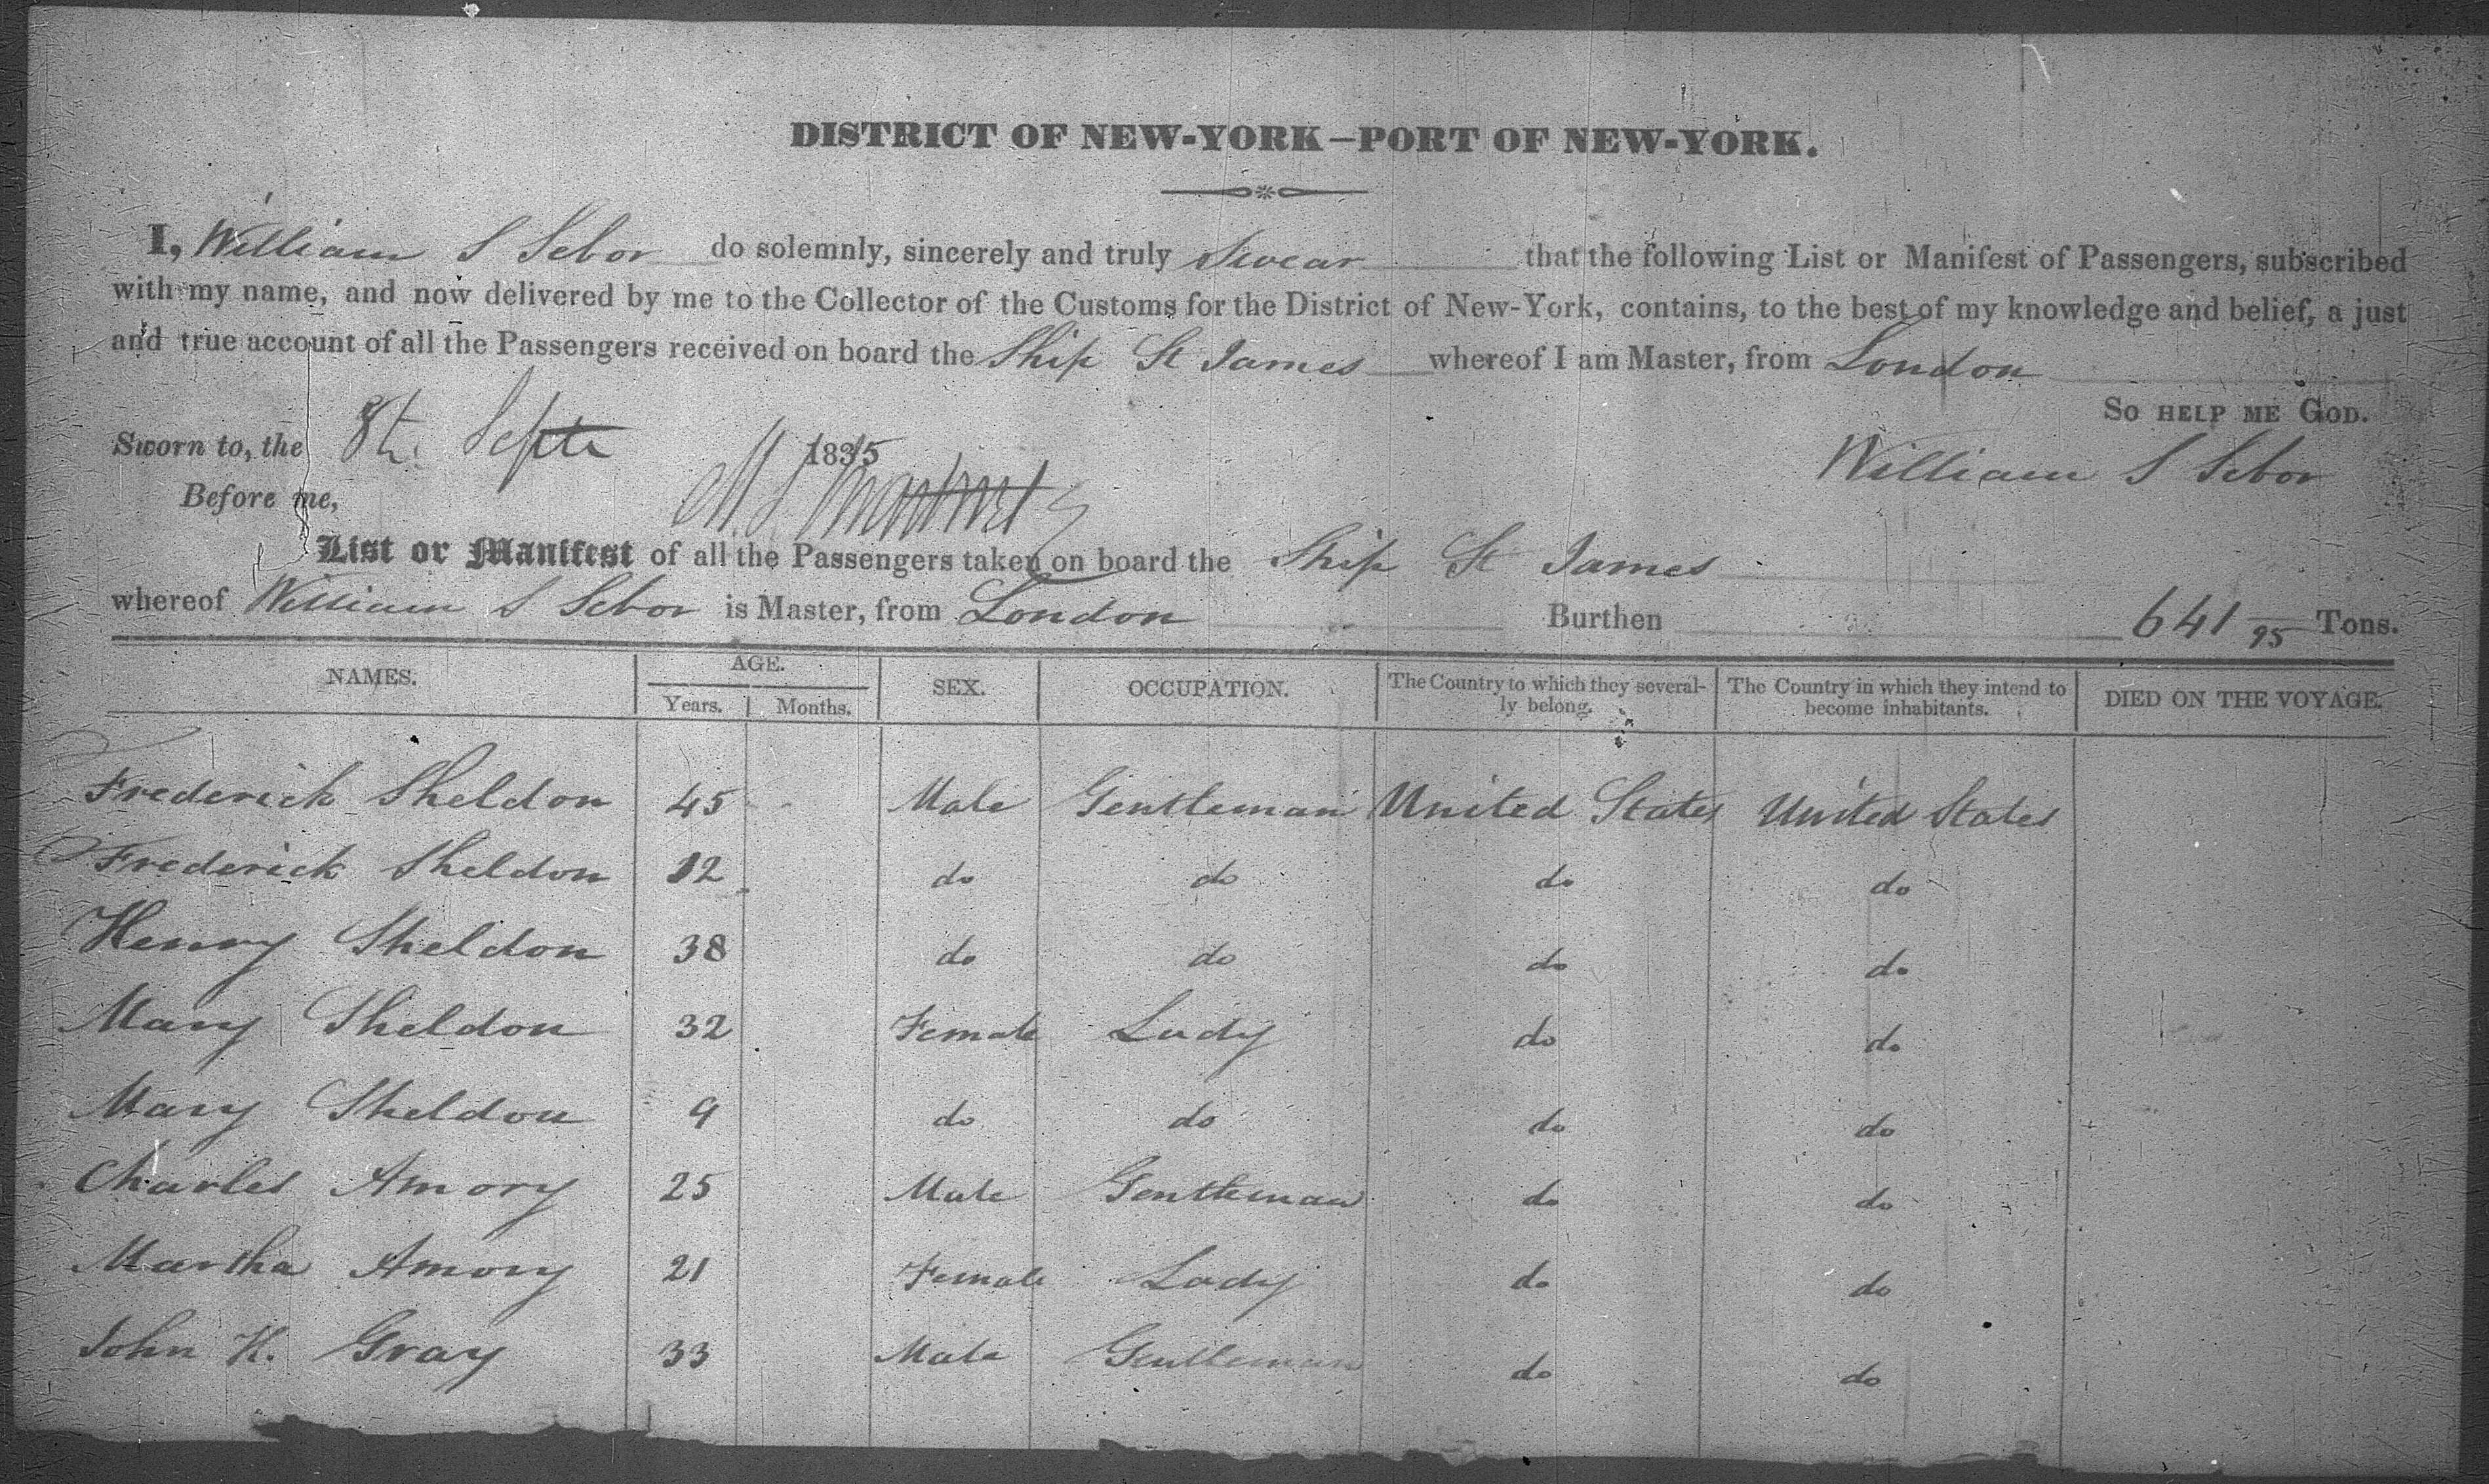 DISTRICT OF NEW-YORK–PORT OF NEW-YORK.
I, William S Sebor do solemnly, sincerely and truly Swear that the following List or Manifest of Passengers, subscribed
with my name, and now delivered by me to the Collector of the Customs for the District of New-York, contains, to the best of my knowledge and belief, a just
and true account of all the Passengers received on board the Ship St James whereof I am Master, from London
So help me God.
Sworn to, the 8th Septr 1835
William S Sebor
Before me,
List or Manifest of all the Passengers taken on board the Ship St James
whereof William S Sebor is Master, from London Burthen 641 /95 Tons.
NAMES. AGE. Years. Months. SEX. OCCUPATION. The Country to which they severally belong. The Country in which they intend to become inhabitants. DIED ON THE VOYAGE.
Frederick Sheldon 45 Male Gentleman United States United States
Frederick Sheldon 12 do do do do
Henry Sheldon 38 do do do do
Mary Sheldon 32 Female Lady do do
Mary Sheldon 9 do do do do
Charles Amory 25 Male Gentleman do do
Martha Amory 21 Female Lady do do
John H. Gray 33 Male Gentleman do do